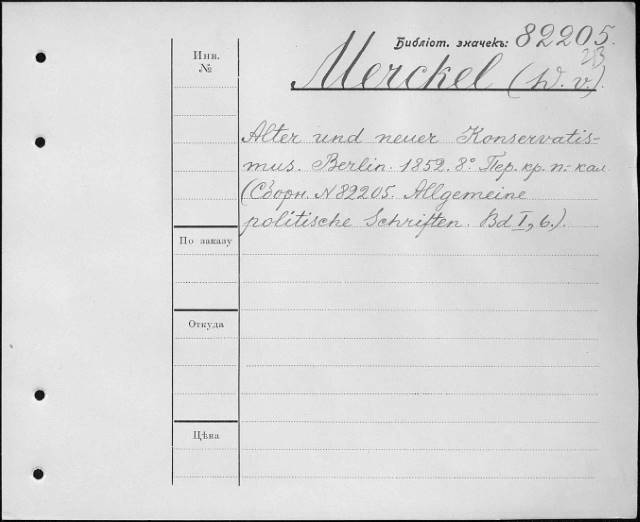 Библіот. значекъ: 82205.
23
Инв.
№
Merckel (W. v.).
Alter und neuer Konservatis-
mus. Berlin. 1852. 8° Пер. кр. п.-кал.
(Сборн. N 82205. Allgemeine
politische Schriften. Bd I, 6.).
По заказу
Откуда
Цѣна